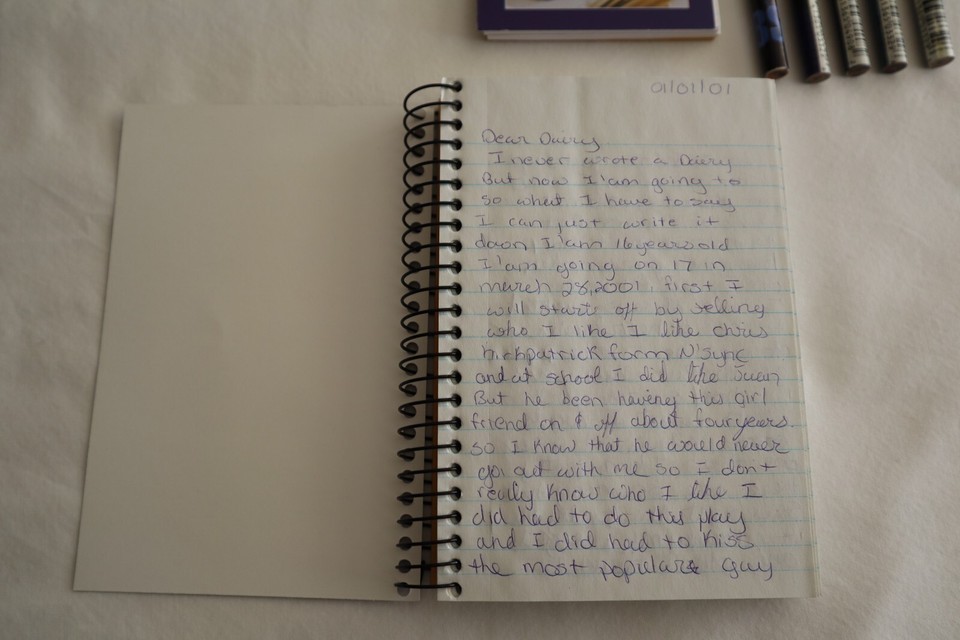 01/01/01
Dear Dairy
I never wrote a Dairy
But now I'am going to
so what I have to say
I can just write it
down I'am 16 years old
I'am going on 17 in
march 28,2001, first I
will start off by telling
who I like I like chris
kirkpatrick form N'Sync
and at school I did like Juan
But he been having this girl
friend on & off about four years.
so I know that he would never
go out with me so I don't
really know who I like I
did had to do this play
and I did had to kiss
the most popular guy